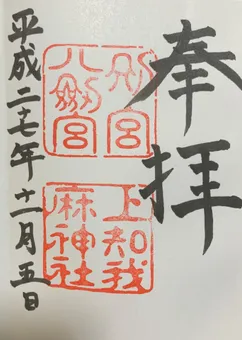 奉拝
別宮
八剱宮
上知我
麻神社
平成二十七年十一月五日